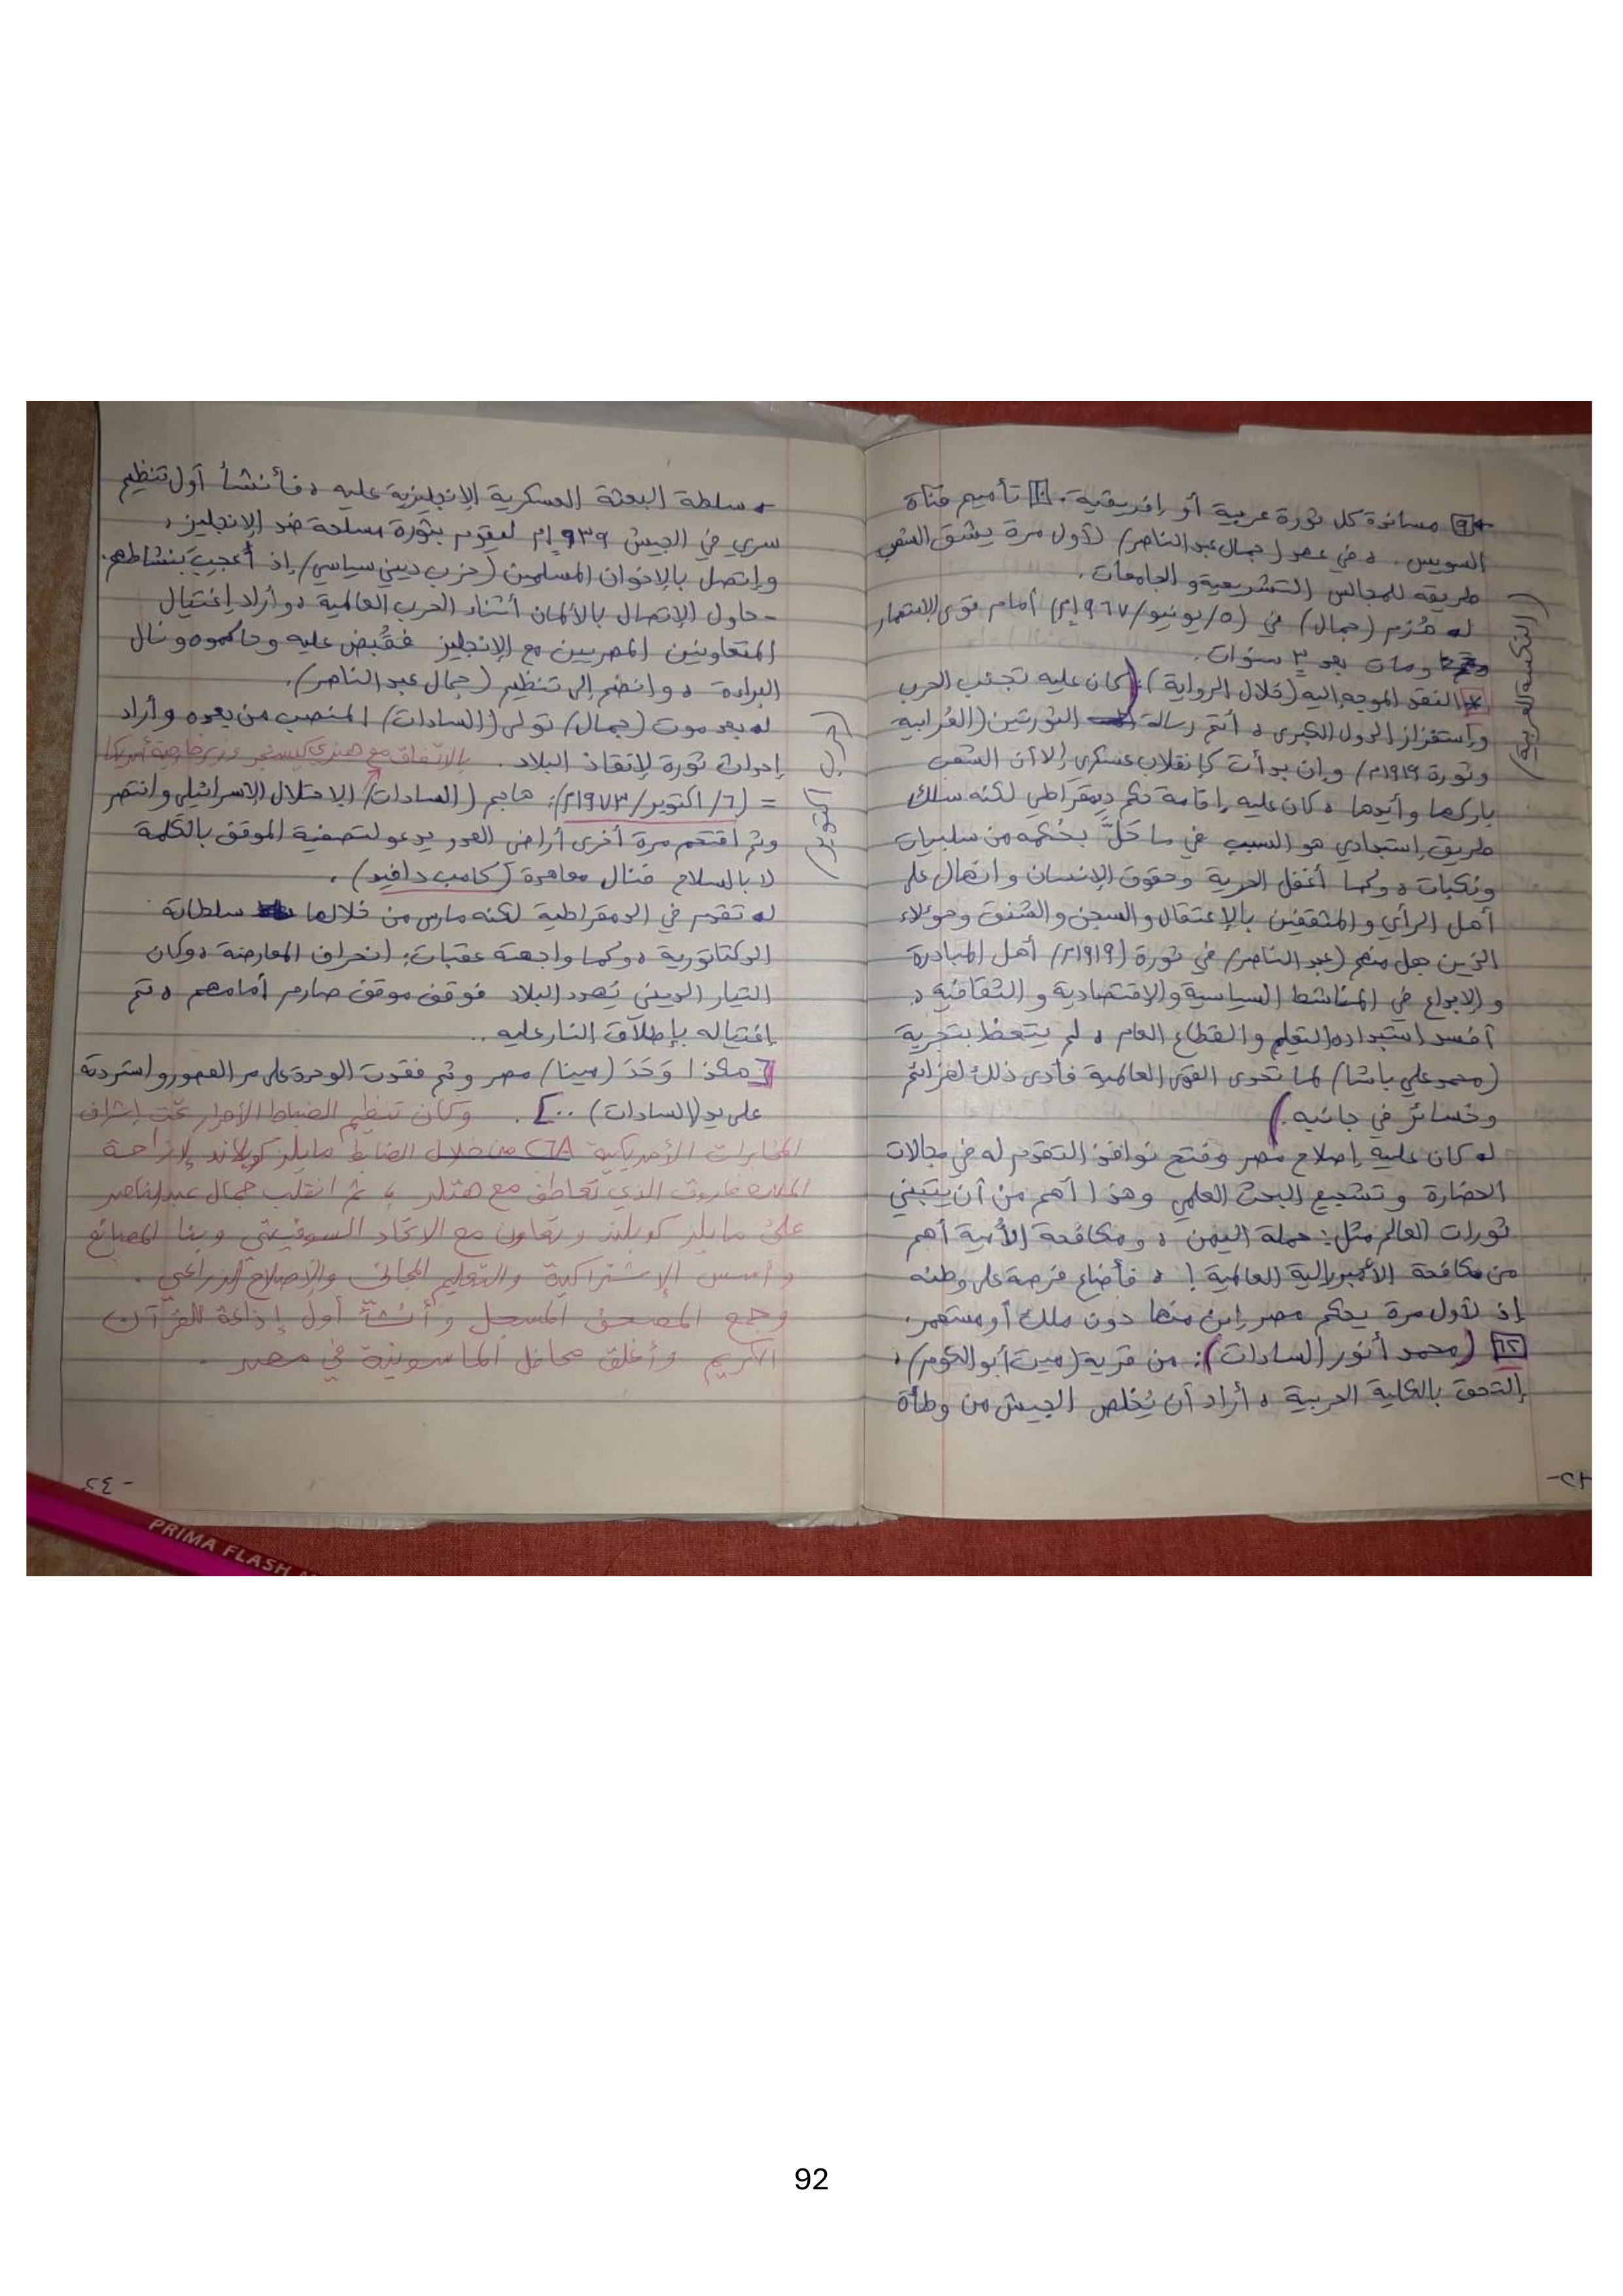 [٩] مساندة كل ثورة عربية أو إفريقية. [١٠] تأميم قناة
السويس. ، في عصر (جمال عبد الناصر) لأول مرة يشق الشعب
طريقه للمجالس التشريعية و الجامعات.
له هُزم (جمال) في (٥/يونيو/١٩٦٧م) أمام قوى الإستعمار
ومات بعد ٣ سنوات.
(النكسة العربية)
* النقد الموجه إليه (خلال الرواية): (كان عليه تجنب الحرب
وإستفزاز الدول الكبرى ، أنتم رسالة الثورتين (العُرابية
وثورة ١٩١٩م) وإن بدأت كإنقلاب عسكري إلا أن الشعب
باركها وأيدها ، كان عليه إقامة حكم ديمقراطي لكنه سلك
طريق إستبدادي هو السبب في ما حَلّ بحُكمه من سلبيات
ونكبات ، وكما أغفل الحرية وحقوق الإنسان وانهال على
أهل الرأي و المثقفين بالإعتقال والسجن والشنق وهؤلاء
الذين جعل منهم (عبد الناصر) في ثورة (١٩١٩م) أهل المبادرة
و الإبداع في المناشط السياسية والإقتصادية و الثقافية ،
أفسد استبداده التعليم والقطاع العام ، لم يتعظ بتجربة
(محمد علي باشا) لما تحدى القوى العالمية فأدى ذلك لهزائم
وخسائر في جانبه.)
له كان عليه إصلاح مصر وفتح نوافذ التقدم له في مجالات
الحضارة و تشجيع البحث العلمي وهذا أهم من أن يتبني
ثورات العالم مثل: حملة اليمن ، و مكافحة الأمية أهم
من مكافحة الأمبريالية العالمية! ، فأضاع فرصة على وطنه
إذ لأول مرة يحكم مصر إبن منها دون ملك أو مستعمر.
[١٢] (محمد أنور السادات): من قرية (ميت أبو الكوم)،
إلتحق بالكلية الحربية ، أراد أن يُخلص الجيش من وطأة
سلطة البعثة العسكرية الإنجليزية عليه ، فأنشأ أول تنظيم
سري في الجيش ١٩٣٩م ليقوم بثورة مسلحة ضد الإنجليز،
وإتصل بالإخوان المسلمين (حزب ديني سياسي) إذ أُعجِبَ بنشاطهم.
- حاول الإتصال بالألمان أثناء الحرب العالمية ، وأراد إغتيال
المتعاونين المصريين مع الإنجليز فقُبض عليه وحاكموه ونال
البراءة ، وانضم إلى تنظيم (جمال عبد الناصر).
له بعد موت (جمال) تولى (السادات) المنصب من بعده وأراد
إحداث ثورة لإنقاذ البلاد. بالاتفاق مع هنري كيسنجر وزير خارجية أمريكا
= (٦/ اكتوبر/١٩٧٣م): هاجم (السادات) الاحتلال الإسرائيلي وانتصر
(حرب أكتوبر)
وثم أقتحم مرة أخرى أراضي العدو يدعو لتصفية الموقف بالكلمة
لا بالسلاح فنال معاهدة (كامب دافيد).
له تقدم في الدمقراطية لكنه مارس من خلالها سلطاته
الدكتاتورية ، وكما واجهته عقبات: إنحراف المعارضة ، وكان
التيار الديني يُهدد البلاد فوقف موقف صارم أمامهم ، تم
إغتياله بإطلاق النار عليه ..
[هكذا وَحّدَ (مينا) مصر وثم فقدت الوحدة على مر العصور واستردته
على يد (السادات) ..]. وكان تنظيم الضباط الأحرار تحت إشراف
المخابرات الأمريكية CIA من خلال الضابط مايلز كوبلاند لإزاحة
الملك فاروق الذي تعاطف مع هتلر ، ثم انقلب جمال عبد الناصر
على مايلز كوبلند وتعاون مع الاتحاد السوفيتي وبنا المصانع
وأسس الإشتراكية والتعليم المجاني والإصلاح الزراعي.
وجمع المصحف المسجل وأنشأ أول إذاعة للقرآن
الكريم وأغلق محافل الماسونية في مصر.
- ٢٤
PRIMA FLASH
92